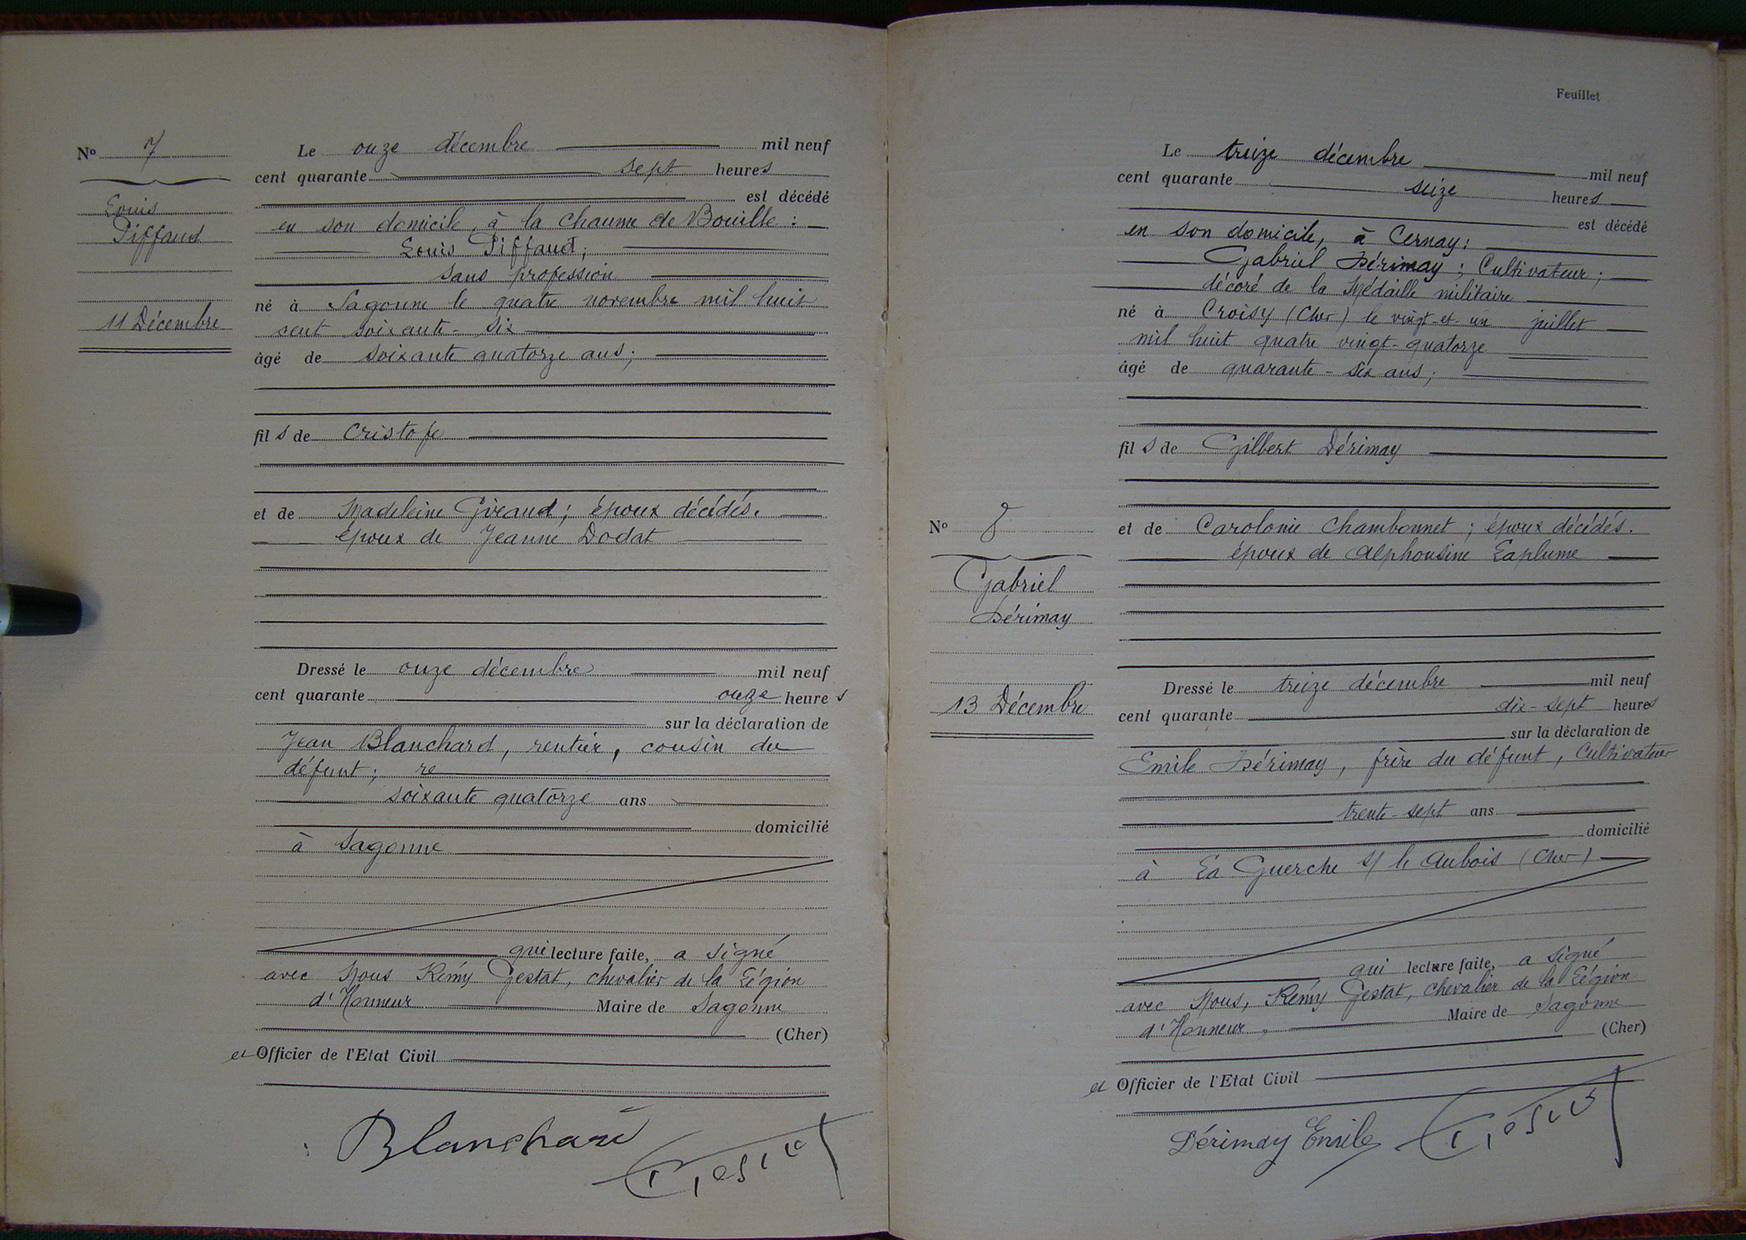 N° 7
Louis
Piffaud
11 Décembre
Le onze décembre mil neuf
cent quarante sept heures
est décédé
en son domicile, à la Chaume de Bouille :
Louis Piffaud ;
sans profession
né à Sagonne le quatre novembre mil huit
cent soixante-six
âgé de soixante quatorze ans ;
fils de Cristofe
et de Madeleine Giraud ; époux décédés.
époux de Jeanne Dodat
Dressé le onze décembre mil neuf
cent quarante onze heures
sur la déclaration de
Jean Blanchard, rentier, cousin du
défunt ; re
soixante quatorze ans
domicilié
à Sagonne
qui lecture faite, a signé
avec Nous Rémy Gestat, chevalier de la Légion
d'Honneur Maire de Sagonne
(Cher)
et Officier de l'Etat Civil
Blanchard
Feuillet
Le treize décembre mil neuf
cent quarante seize heures
est décédé
en son domicile, à Cernay :
Gabriel Dérimay ; Cultivateur ;
décoré de la Médaille militaire
né à Croisy (Cher) le vingt-et-un juillet
mil huit quatre vingt-quatorze
âgé de quarante-six ans ;
fils de Gilbert Dérimay
N° 8
Gabriel
Dérimay
13 Décembre
et de Carolonie Chambonnet ; époux décédés.
époux de Alphonsine Laplume
Dressé le treize décembre mil neuf
cent quarante dix-sept heures
sur la déclaration de
Emile Dérimay, frère du défunt, Cultivateur
trente-sept ans
domicilié
à La Guerche s/ l'Aubois (Cher)
qui lecture faite, a signé
avec Nous, Rémy Gestat, chevalier de la Légion
d'Honneur, Maire de Sagonne
(Cher)
et Officier de l'Etat Civil
Dérimay Emile